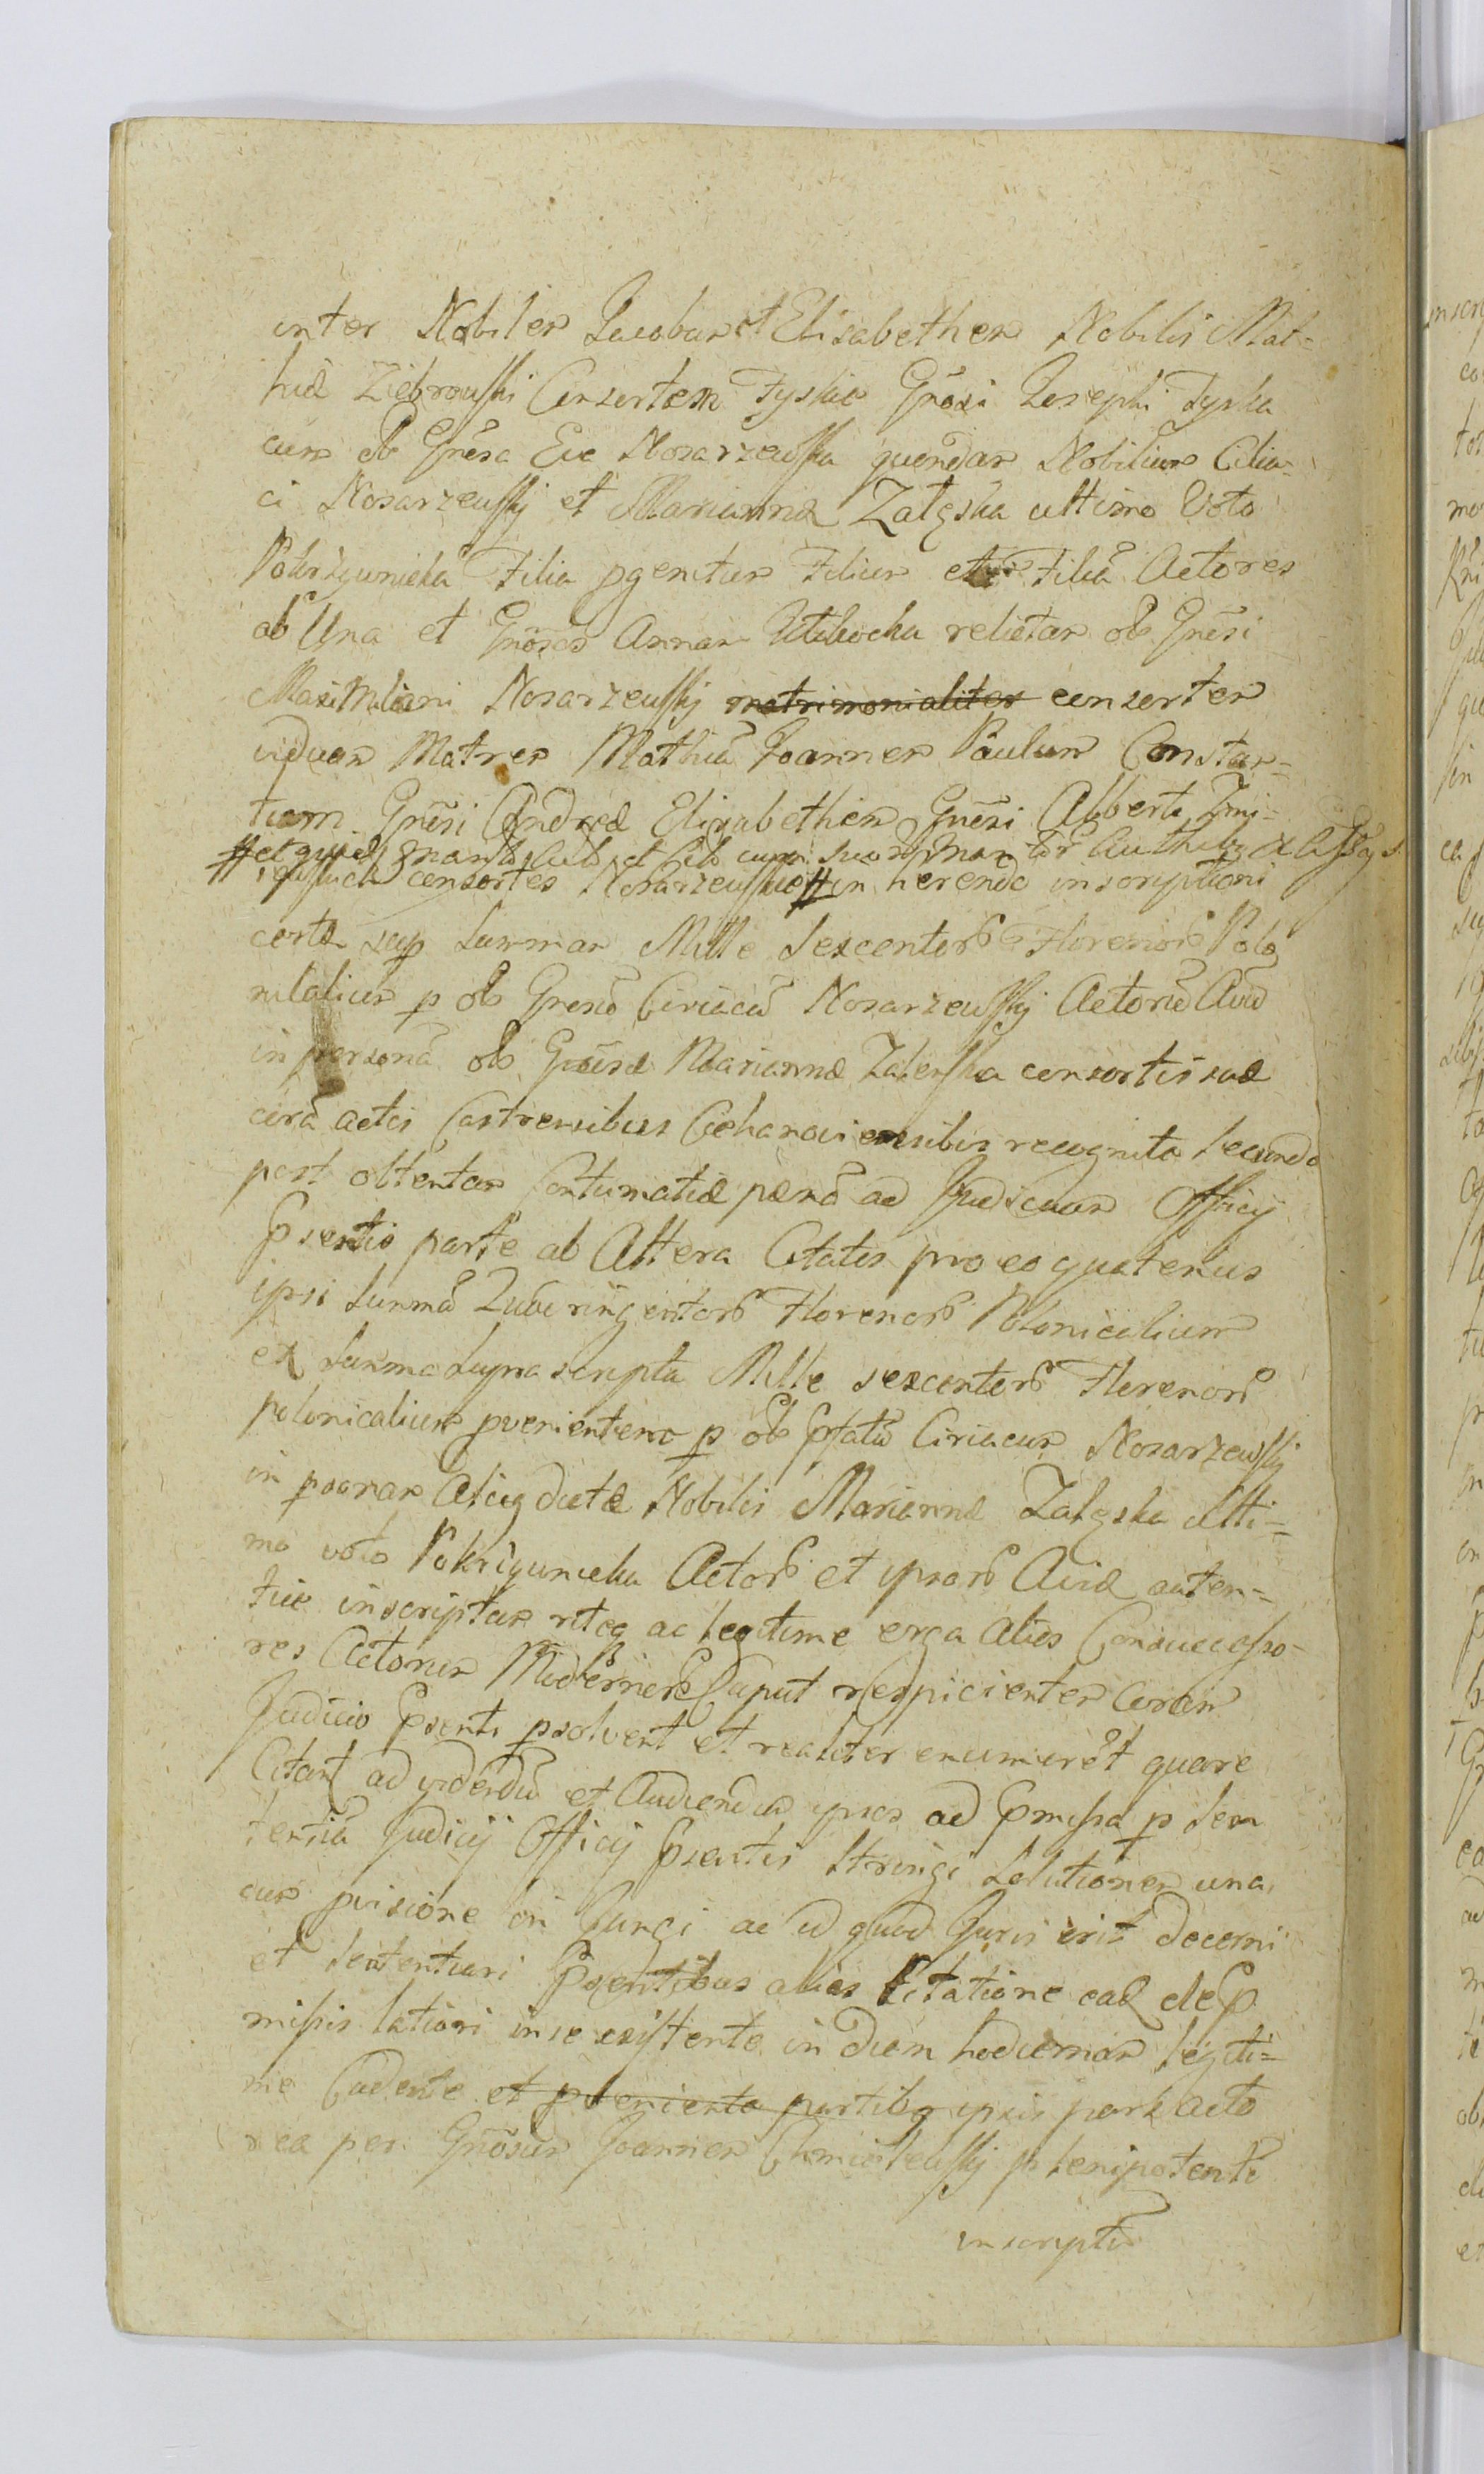 inter Nobiles Jacobum et Elisabetham Nobilis Mat-
hiæ Ziebrowski Consortem Fyskie Gñosi Josephi Fyska
cum olim Gñosa Eva Nosarzewska quondam Nobilium Ciria-
ci Nosarzewskij et Mariannæ Załęska ultimo Voto
Pokrzywnicka Filia pgenitum Filium et Filiã Actores
ab Una et Gñosas Annam relictam olim Gñosi
Maximiliani Nosarzewskij matrimonialiter consortem
viduam Matrem Mathiã Joannem Paulum Constan-
tiam Gñosi Andreæ Elisabetham Gñosi Alberti Zmi-
# et quid et cum suor
jewska consortes Nosarzewskie # in herendo inscriptioni
certæ sup Summam Mille Sexcentor Florenor Polo
nicalium p olim Gnosũ Ciriacũ Nosarzewskij Actorũ Avũ
in personã olim Gñosæ Mariannæ Zaleska consortis suæ
corã actis Castrensibus Ciechanoviensibus recognita Secundo
post obtentam Contumatiæ pænã ad Judicium Officij
Psentis parte ab Altera Citatos pro eo quatenus
ipsi Summã Quadringentor Florenor Polonicalium
ex Summa Suprascripta Mille sexcentor Florenor
polonicalium pvenientem p olim Pfatũ Ciriacum Nosarzewskij
in psonam dictæ Nobilis Mariannæ Załęska Ulti-
mo voto Pokrzywnicka Actor et ipsor Aviæ auten-
tice inscriptam riteq ac legitime erga alios Consuccesso-
res Actorum Modernor Caput respicientem Coram
Judicio Psenti psolvent et realiter enumerẽt quare
Citant ad videndũ et Audiendũ ipsos ad Pmissa p Sen
tentiã Judicij Officij Psentis Stringi Solutionem una
cum pvisione in Jungi ac id quod Juris erit decerni
et Sententiari Psentibus alias Citatione ead de P
missis latiori in se existente in diem hodiernam legiti-
me Cadente et pveniente partibq ipsis pars acto
rea per Gñosum Joannem Chmielewskij plenipotentẽ
inscriptũ